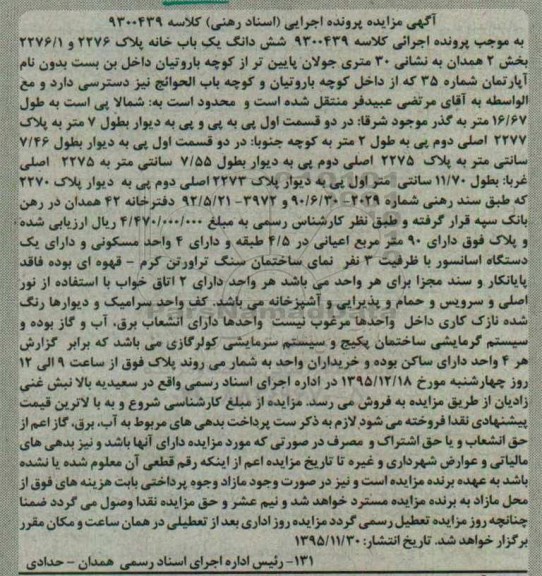 آگهی مزایده پرونده اجرایی (اسناد رهنی) کلاسه ۹۳۰۰۴۳۹
به موجب پرونده اجرائی کلاسه ۹۳۰۰۴۳۹ شش دانگ یک باب خانه پلاک ۲۲۷۶ و ۲۲۷۶/۱
بخش ۲ همدان به نشانی ۳۰ متری جولان پایین تر از کوچه باروتیان داخل بن بست بدون نام
آپارتمان شماره ۳۵ که از داخل کوچه باروتیان و کوچه باب الحوائج نیز دسترسی دارد و مع
الواسطه به آقای مرتضی عبیدفر منتقل شده است و محدود است به: شمالا پی است به طول
۱۶/۶۷ متر به گذر موجود شرقا: در دو قسمت اول پی به پی و پی به دیوار بطول ۷ متر به پلاک
۲۲۷۷ اصلی دوم پی به طول ۲ متر به کوچه جنوبا: در دو قسمت اول پی به دیوار بطول ۷/۴۶
سانتی متر به پلاک ۲۲۷۵ اصلی دوم پی به دیوار بطول ۷/۵۵ سانتی متر به ۲۲۷۵ اصلی
غربا: بطول ۱۱/۷۰ سانتی متر اول پی به دیوار پلاک ۲۲۷۳ اصلی دوم پی به دیوار پلاک ۲۲۷۰
که طبق سند رهنی شماره ۲۰۲۹-۹۰/۶/۳۰ و ۳۹۷۲-۹۲/۵/۲۱ دفترخانه ۴۲ همدان در رهن
بانک سپه قرار گرفته و طبق نظر کارشناس رسمی به مبلغ ۴/۴۷۰/۰۰۰/۰۰۰ ریال ارزیابی شده
و پلاک فوق دارای ۹۰ متر مربع اعیانی در ۴/۵ طبقه و دارای ۴ واحد مسکونی و دارای یک
دستگاه آسانسور با ظرفیت ۳ نفر نمای ساختمان سنگ تراورتن کرم - قهوه ای بوده فاقد
پایانکار و سند مجزا برای هر واحد می باشد هر واحد دارای ۲ اتاق خواب با استفاده از نور
اصلی و سرویس و حمام و پذیرایی و آشپزخانه می باشد. کف واحد سرامیک و دیوارها رنگ
شده نازک کاری داخل واحدها مرغوب نیست واحدها دارای انشعاب برق، آب و گاز بوده و
سیستم گرمایشی ساختمان پکیج و سیستم سرمایشی کولرگازی می باشد که برابر گزارش
هر ۴ واحد دارای ساکن بوده و خریداران واحد به شمار می روند پلاک فوق از ساعت ۹ الی ۱۲
روز چهارشنبه مورخ ۱۳۹۵/۱۲/۱۸ در اداره اجرای اسناد رسمی واقع در سعیدیه بالا نبش غنی
زادیان از طریق مزایده به فروش می رسد. مزایده از مبلغ کارشناسی شروع و به با لاترین قیمت
پیشنهادی نقدا فروخته می شود لازم به ذکر ست پرداخت بدهی های مربوط به آب، برق، گاز اعم از
حق انشعاب و یا حق اشتراک و مصرف در صورتی که مورد مزایده دارای آنها باشد و نیز بدهی های
مالیاتی و عوارض شهرداری و غیره تا تاریخ مزایده اعم از اینکه رقم قطعی آن معلوم شده یا نشده
باشد به عهده برنده مزایده است و نیز در صورت وجود مازاد وجوه پرداختی بابت هزینه های فوق از
محل مازاد به برنده مزایده مسترد خواهد شد و نیم عشر و حق مزایده نقدا وصول می گردد ضمنا
چنانچه روز مزایده تعطیل رسمی گردد مزایده روز اداری بعد از تعطیلی در همان ساعت و مکان مقرر
برگزار خواهد شد. تاریخ انتشار: ۱۳۹۵/۱۱/۳۰
۱۳۱- رئیس اداره اجرای اسناد رسمی همدان - حدادی